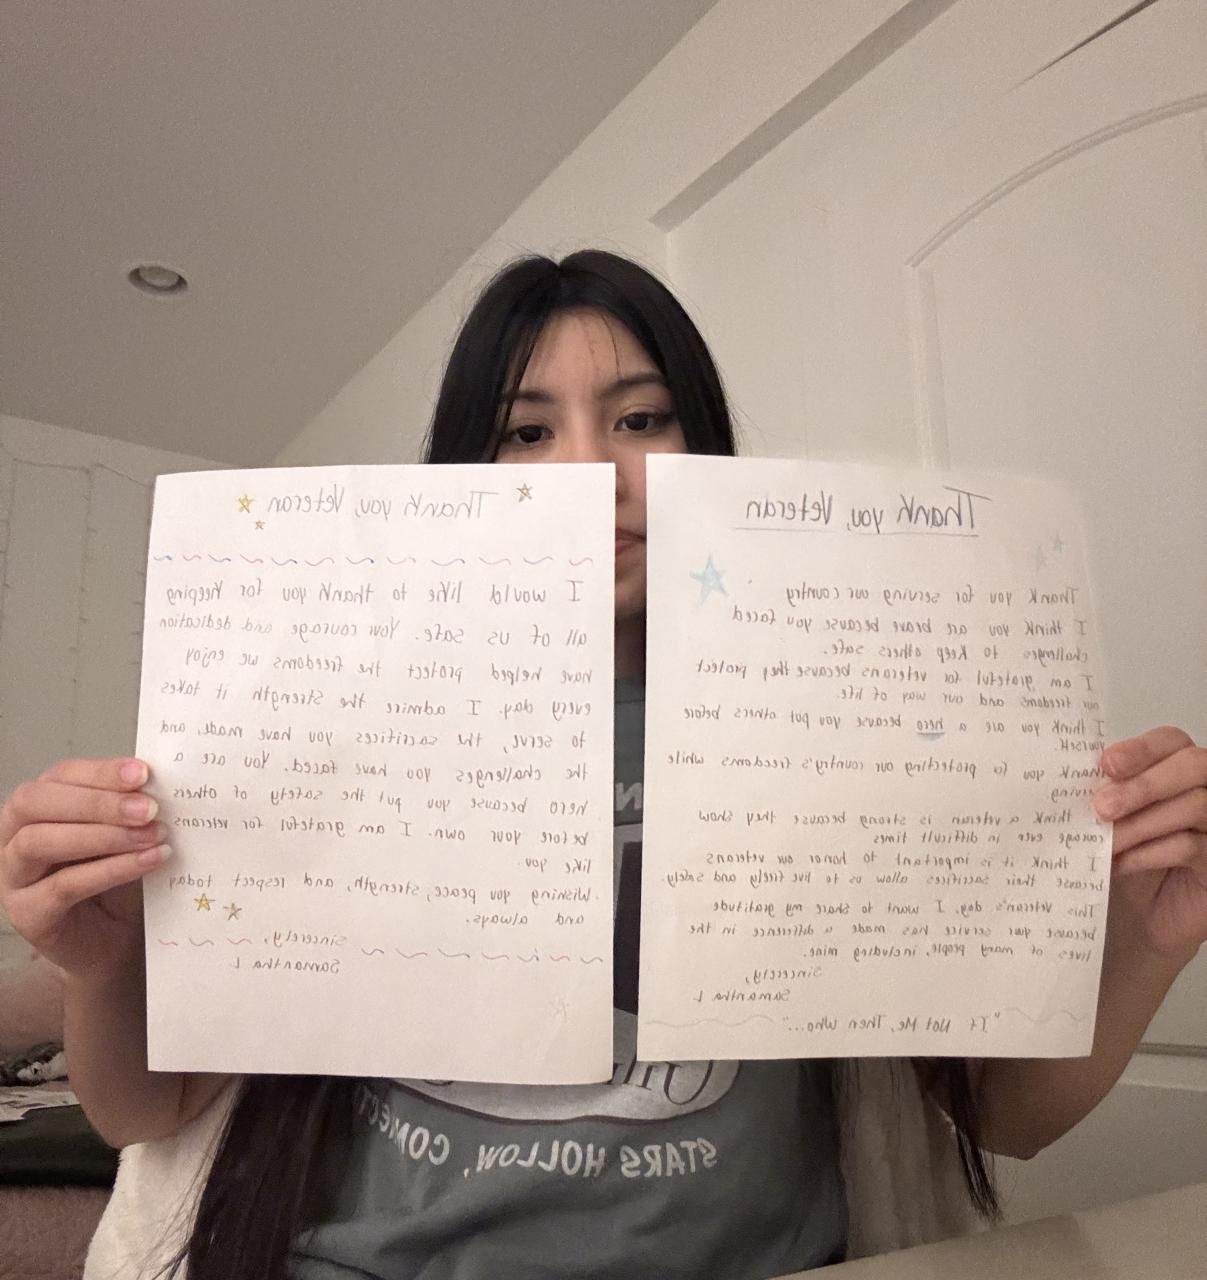 Thank you, Veteran
I would like to thank you for keeping
all of us safe. Your courage and dedication
have helped protect the freedoms we enjoy
every day. I admire the strength it takes
to serve, the sacrifices you have made, and
the challenges you have faced. You are a
hero because you put the safety of others
before your own. I am grateful for veterans
like you.
Wishing you peace, strength, and respect today
and always.
Sincerely,
Samantha L
Thank you, Veteran
Thank you for serving our country
I think you are brave because you faced
challenges to keep others safe.
I am grateful for veterans because they protect
our freedoms and our way of life.
I think you are a hero because you put others before
yourself.
Thank you for protecting our country's freedoms while
I think a veteran is strong because they show
courage even in difficult times
I think it is important to honor our veterans
because their sacrifices allow us to live freely and safely.
This Veteran's day, I want to share my gratitude
because your service has made a difference in the
lives of many people, including mine.
Sincerely,
Samantha L
"If Not Me, Then Who..."
STARS HOLLOW, CONNECT